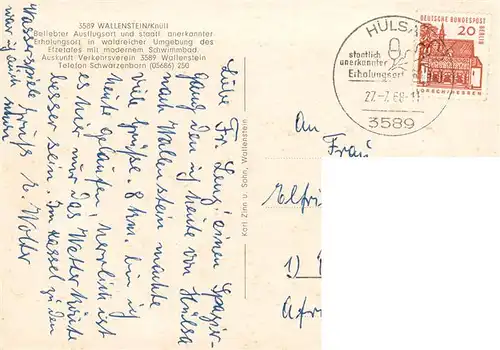 3589 WALLENSTEIN/Knüll
Beliebter Ausflugsort und staatl. anerkannter
Erholungsort in waldreicher Umgebung des
Efzetales mit modernem Schwimmbad.
Auskunft Verkehrsverein 3589 Wallenstein
Telefon Schwarzenborn (05686) 250
Liebe Fr. Lenz! einen Spazier-
gang den ich heute von Hülsa
nach Wallenstein machte
viele Grüße. 8 km. bin ich
heute gelaufen herrlich ist
es hier nur das Wetter könnte
besser sein. Im Kassel zu den
Wasserspiele
war ich auch schon
Gruß E. Wolter
Karl Zinn u. Sohn, Wallenstein
HÜLSA
staatlich
anerkannter
Erholungsort
22-7.68-11
3589
DEUTSCHE BUNDESPOST
BERLIN
20
LORSCH/HESSEN
An
Frau
Elfri
1)